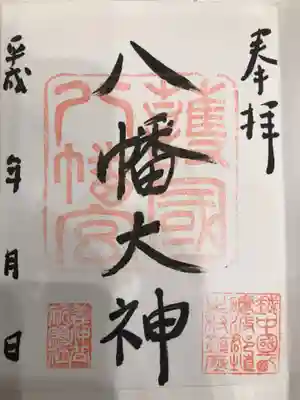 奉拝
八幡大神
護国
八幡宮
平成 年 月 日